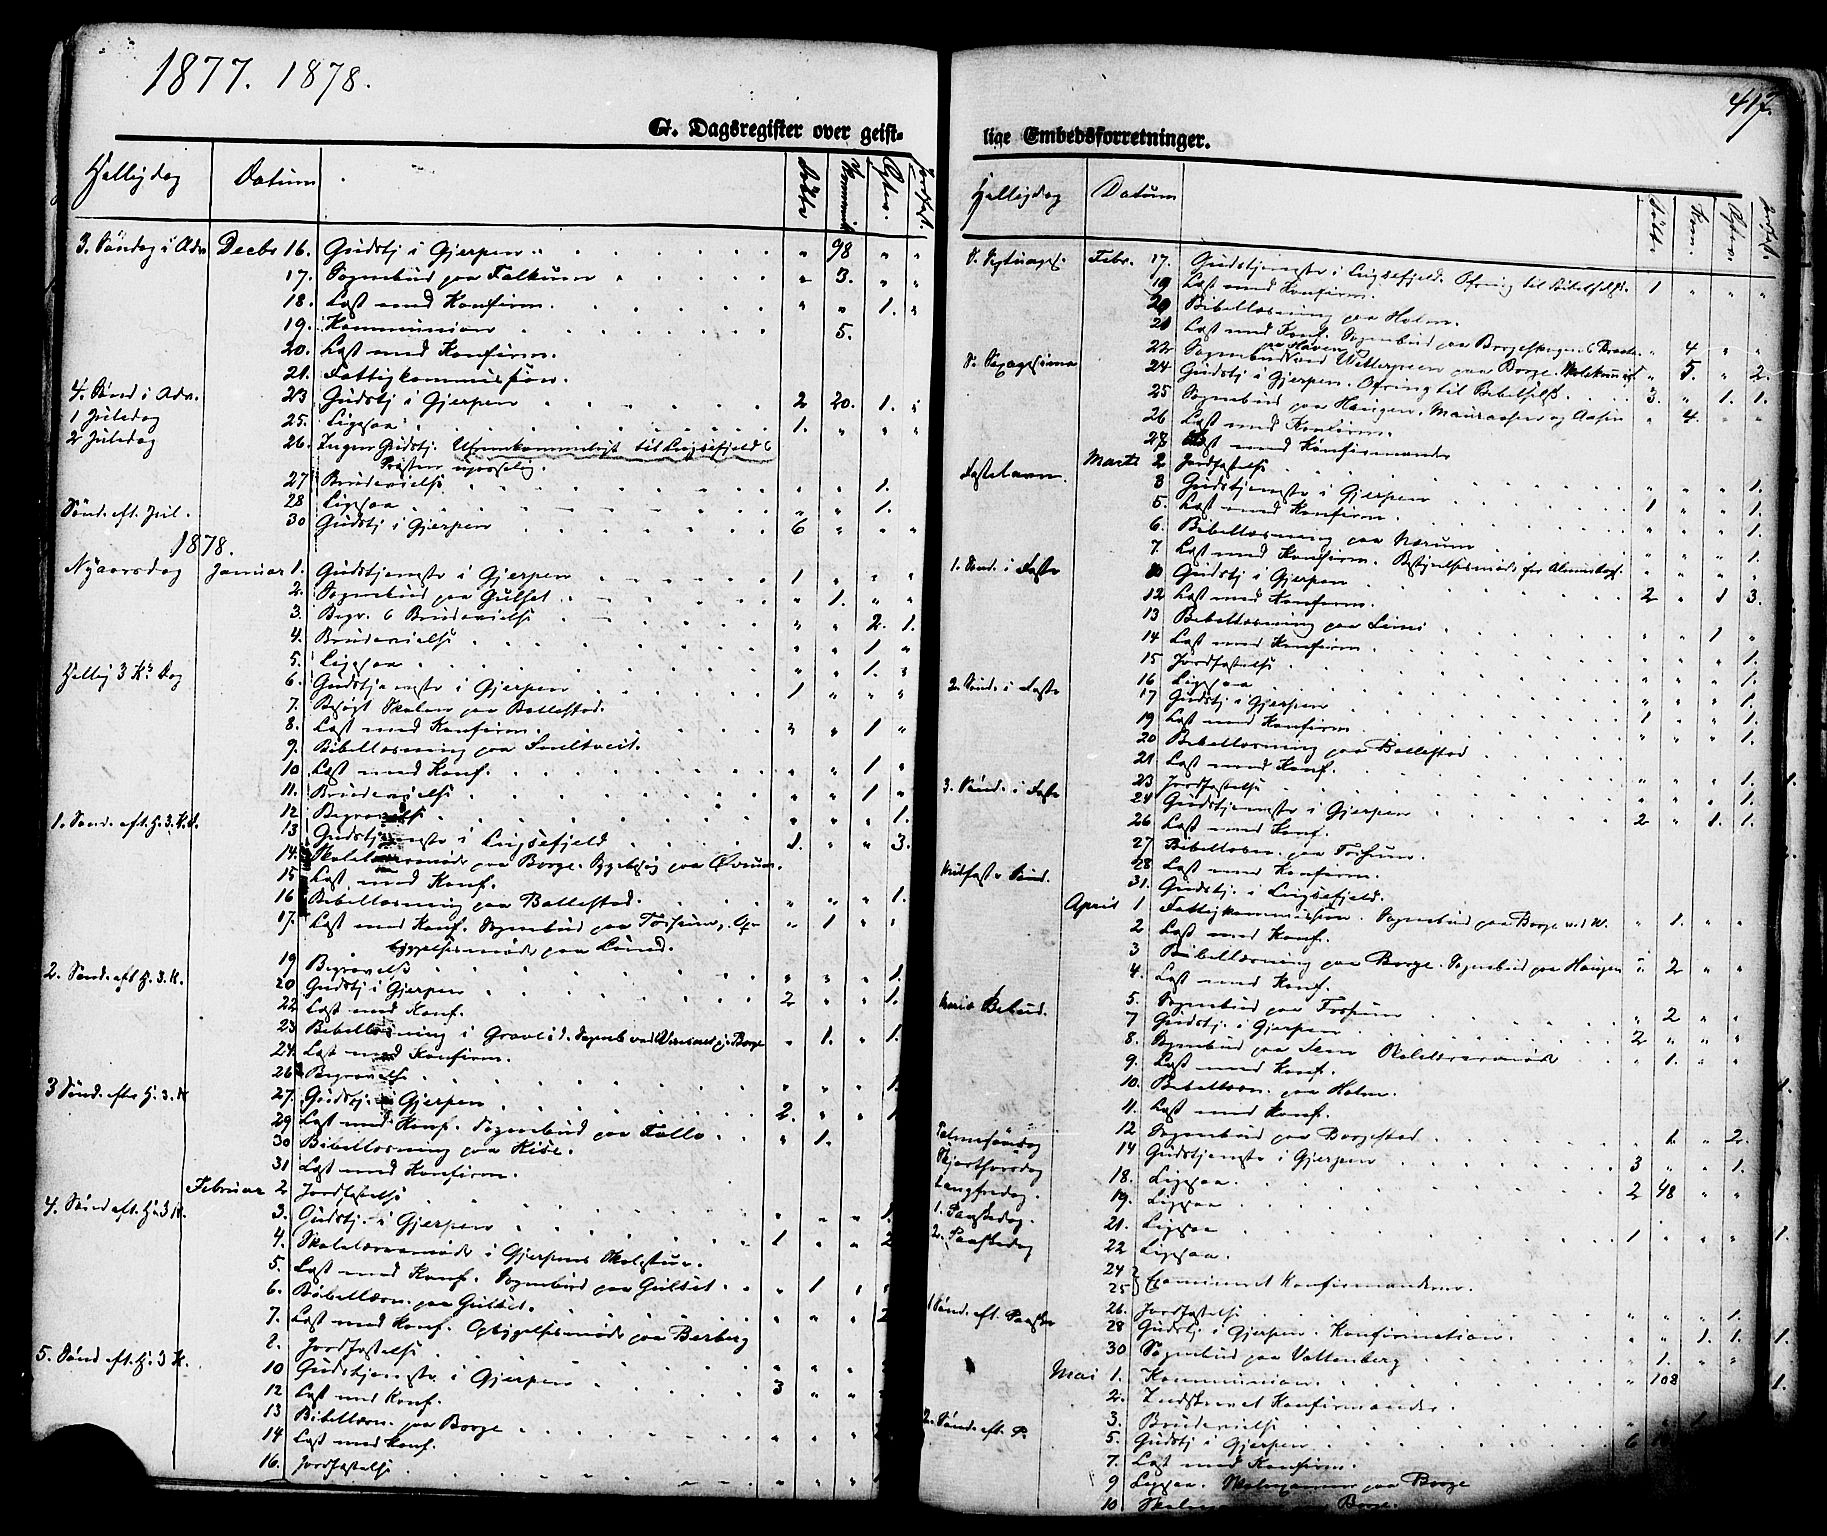 1877. 1878.
G. Dagsregister over geist-
Helligdag Datum Døbte Kommunik Ægtev. Jordfæst.
3. Søndag i Adv. Decbr 16. Gudstj i Gjerpen " 98 " "
17. Sognebud paa Falkum " 3. " "
18. Læst med Konfirm. " " 1. "
19. Kommunion 5.
20. Læst med Konfirm.
21. Fattigkommission.
4. Sønd i Adv. 23 Gudstj i Gjerpen 2 20. 1. "
1 Juledag 25. Ligesaa 1. " " "
2 Juledag 26. Ingen Gudstj. Ufremkommeligt til Luksefjeld &
Præsten upasselig.
27 Brudevielse " " 1.
28 Ligesaa " " 1.
Sønd. eft. Jul. 30 Gudstj i Gjerpen 6 " " "
1878.
Nyaarsdag Januar 1. Gudstjeneste i Gjerpen 1 " " "
2. Sognebud paa Gulset " 1. " "
3. Begr. & Brudevielse " " 2. 1.
4. Brudevielse " " 1 "
5. Ligesaa " " 1. "
Hellig 3 K's Dag 6. Gudstjeneste i Gjerpen 1 " " "
7. Besøgt Skolen paa Ballestad.
8. Læst med Konfirm. " " 1 "
9. Bibellæsning paa Smeltveit.
10 Læst med Konf. " " 1 "
11. Brudevielse " " 1 "
12 Begravelse " " " 1.
1. Sønd. eft. H. 3. K. D. 13 Gudstjeneste i Luksefjeld 1. " " 3.
14. Skolelærermøde paa Borge. paa Øvrum.
15 Læst med Konf.
16 Bibellæsning paa Ballestad. " " " 1.
17. Læst med Konf. Sognebud paa Fossum, Op- " 1 " "
byggelsesmøde paa Lund.
19 Begravelse " " " 1.
2. Sønd. eft H. 3. K. 20 Gudstj i Gjerpen 2 " " 1.
22 Læst med Konf.
23 Bibellæsning i Gravlid. Sogneb. ved Borge " 1. " 1.
24. Læst med Konfirm.
26 Begravelse " " " 1.
3 Sønd. efter H. 3. K 27. Gudstj. i Gjerpen 2. " " 1
29 Læst med Konf. Sognebud paa Follo " 1.
30 Bibellæsning paa Rise.
31 Læst med Konfirm.
Februar 2 Jordfæstelse " " " 1.
4. Sønd eft. H. 3 K. 3. Gudstj. i Gjerpen 1 " " 2
4. Skolelærermøde i Gjerpens Skolestue.
5. Læst med Konf. Sognebud paa Gulset " 1 " "
6. Bibellæsn. paa Gulset.
7. Læst med Konf. Opbyggelsesmøde paa Berberg " " " 2
Jordfæstelse
5. Sønd eft. H. 3 K. 10 Gudstjeneste i Gjerpen 3 " "
12 Læst med Konf.
13 Bibellæsn. paa Borge
14 Læst med Konf.
16. Jordfæstelse
417.
lige Embedsforretninger.
Helligdag Datum Døbte Kom. Ægtev. Jordfæst
S. Septuages. Febr. 17. Gudstjeneste i Luksefjeld. Ofring til Bibelselsk. 1 " " "
19 Læst med Konfirm.
20 Bibellæsning paa Holm.
21 Læst med Konf. Sognebud paa Borgeskogen & " 4 " "
22 Sognebud ved paa Borge. " 5. " 2.
S. Sexagesima 24. Gudstj i Gjerpen. Ofring til Bibelselsk 3. " 1. 1.
25 Sognebud paa Haugen, og Aasen " 4. " "
26 Læst med Konfirm.
28 Læst med Konfirmander
Marts 2 Jordfæstelse " " " 1.
Fastelavn. 3 Gudstjeneste i Gjerpen 1 " " 1.
5. Læst med Konfirm.
6. Bibellæsning paa Nærum " " " 1.
7. Læst med Konfirm. " " " "
1. Sønd. i Faste 10 Gudstj i Gjerpen 2 " 1 3.
12 Læst med Konfirm.
13 Bibellæsning paa Limi " " 1 "
14 Læst med Konfirm.
15 Jordfæstelse " " " 1.
16 Ligesaa " " " 1.
2. Sønd. i Faste 17 Gudstj i Gjerpen 1 " " 1.
19 Læst med Konfirm. " " " 1.
20 Bibellæsning paa Ballestad
21 Læst med Konf.
23 Jordfæstelse " " " 1.
3. Sønd. i Faste 24 Gudstjeneste i Gjerpen 2 " 1. 1.
26 Læst med Konf.
27 Bibellæsn. paa Fossum.
28 Læst med Konfirm.
Midfaste Sønd. 31. Gudstj. i Luksefjeld.
April 1 Fattigkommission. Sognebud paa Borge " 1. " "
2 Læst med Konf.
3 Bibellæsning paa Borge. Sognebud paa Haugen " 2 " "
4. Læst med Konf.
5. Sognebud paa Fossum " 2 " "
Mariæ Bebud. 7 Gudstj. i Gjerpen 2 " " "
8. Sognebud paa Skolelærermøde " 1. " "
9. Læst med Konf.
10. Bibellæsn. paa Holm.
11. Læst med Konf.
12 Sognebud paa Borgestad " 1 " 2.
Palmesøndag 14 Gudstjeneste i Gjerpen 3 " " 1.
Skjærthorsdag 18. Ligesaa 2 48 " "
Langfredag. 19. Ligesaa
1. Paaskedag. 21. Ligesaa 1 " " "
2. Paaskedag 22 Ligesaa.
24
25 } Examineret Konfirmanderne.
26. Jordfæstelse " " " 1.
1 Sønd. eft. Paaske 28 Gudstj i Gjerpen. Konfirmation. " " 1. 1.
30 Sognebud paa Vattenberg " 1. " "
Mai 1. Kommunion. " 108
2. Indskrevet Konfirmander.
3. Brudevielse " " 1
2. Sønd. eft. P. 5. Gudstj i Gjerpen 6
7. Læst med Konfirm.
9 Ligesaa. Skolexamen paa Borge
10. Borge.